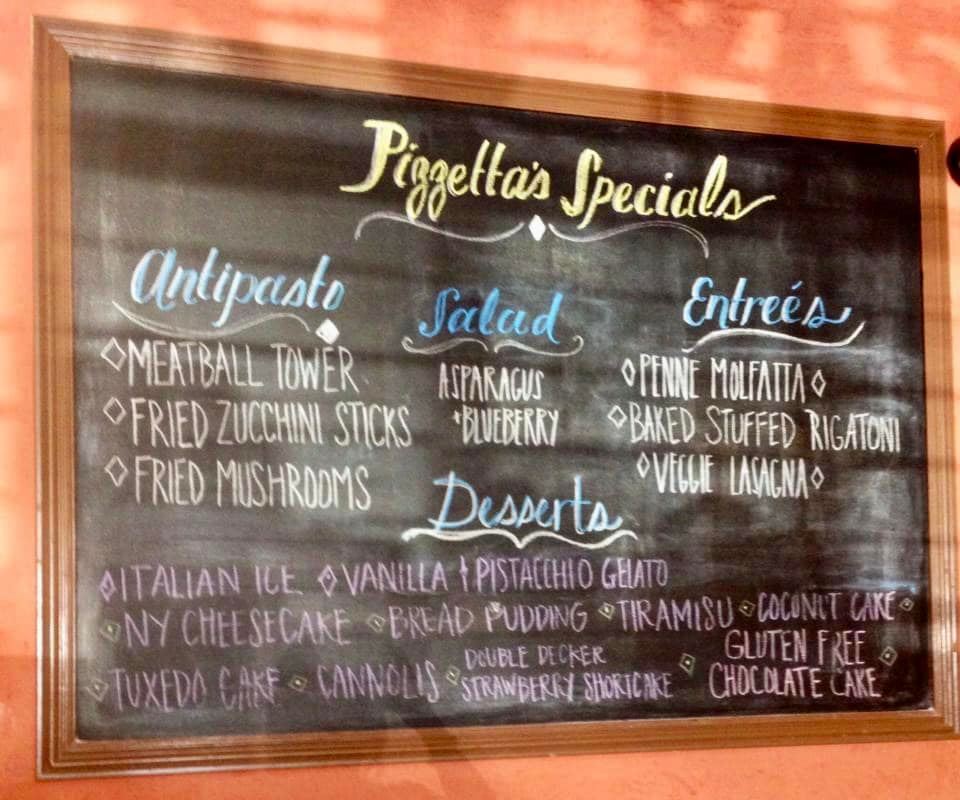 Pizzetta's Specials
Antipasto
MEATBALL TOWER
FRIED ZUCCHINI STICKS
FRIED MUSHROOMS
Salad
ASPARAGUS
+BLUEBERRY
Entreés
PENNE MOLFATTA
BAKED STUFFED RIGATONI
VEGGIE LASAGNA
Desserts
ITALIAN ICE VANILLA + PISTACCHIO GELATO
NY CHEESECAKE BREAD PUDDING TIRAMISU COCONUT CAKE
TUXEDO CAKE CANNOLIS DOUBLE DECKER
STRAWBERRY SHORTCAKE
GLUTEN FREE
CHOCOLATE CAKE